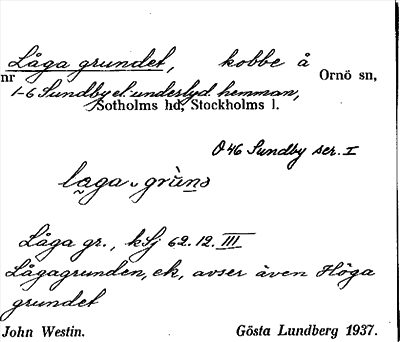 Låga grundet, kobbe å
nr Ornö sn,
1-6 Sundby el. underlyd. hemman,
Sotholms hd, Stockholms l.
Ö 46 Sundby ser. I
laga grùns
Låga gr., kSj 62.12. III
Lågagrunden, ek, avser även Höga
grundet
John Westin. Gösta Lundberg 1937.